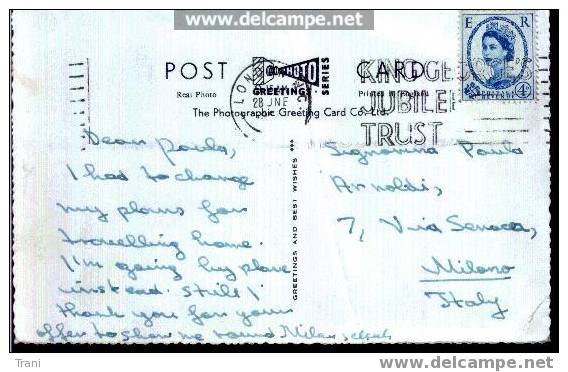 www.delcampe.net
E R
POST CARD
Real Photo
GREETINGS
SERIES
Printed in England
The Photographic Greeting Card Co. Ltd.
LON
28 JNE
KING GEORGE
JUBILEE
TRUST
4D
GREETINGS AND BEST WISHES ***
Dear Paola,
I had to change
my plans for
travelling home.
I'm going by plane
instead. Still I
thank you for your
offer to show me round Milan
Signorina Paola
Arnoldi,
7, Via Seneca,
Milano
Italy
Trani
http://www.delcampe.net